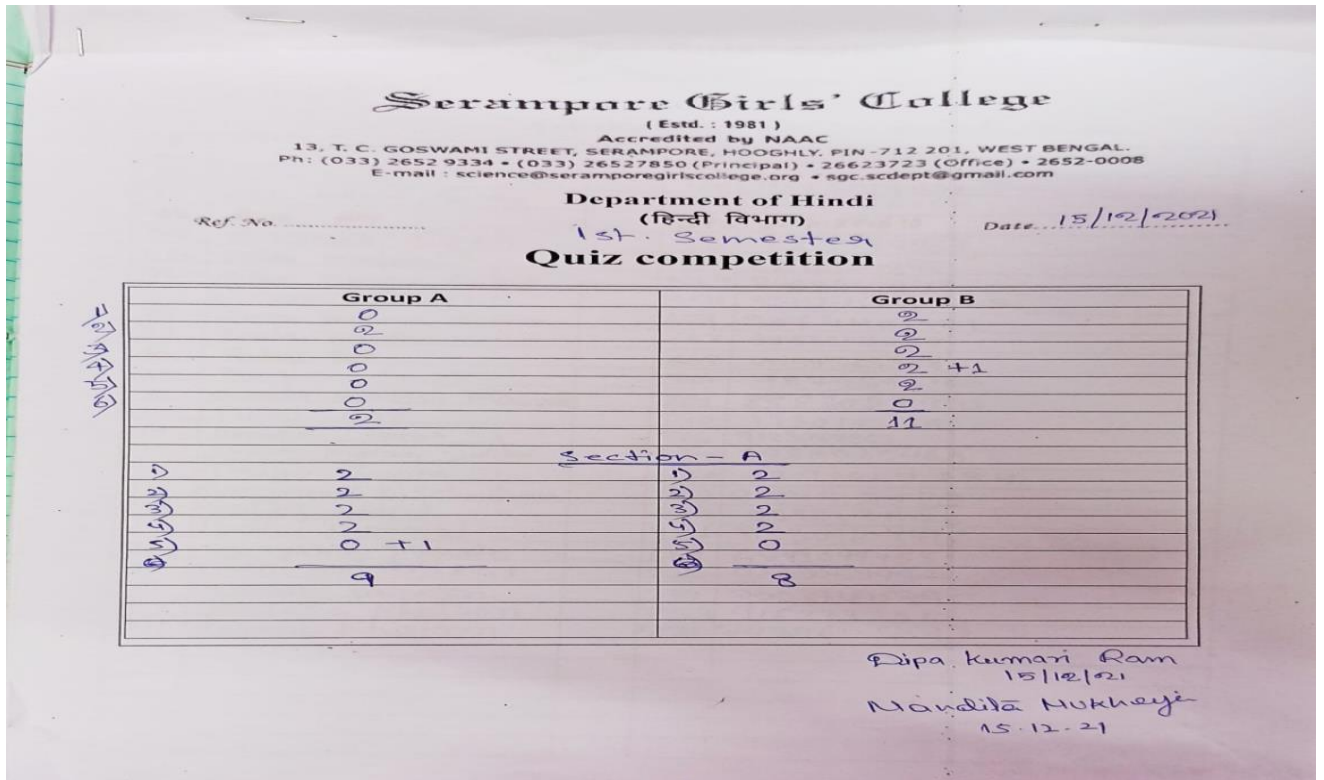 Serampore Girls' College
( Estd. : 1981 )
Accredited by NAAC
13, T. C. GOSWAMI STREET, SERAMPORE, HOOGHLY. PIN -712 201, WEST BENGAL.
Ph: (033) 2652 9334 • (033) 26527850 (Principal) • 26623723 (Office) • 2652-0008
E-mail : science@seramporegirlscollege.org • sgc.scdept@gmail.com
Department of Hindi
Ref. No. (हिन्दी विभाग) Date 15/12/2021
1st. Semester
Quiz competition
Group A Group B
0 2
2 2
0 2
0 2 +1
0 2
0 0
2 11
Section - A
१) 2 १) 2
२) 2 २) 2
३) 2 ३) 2
४) 2 ४) 2
५) 0 +1 ५) 0
9 8
Dipa Kumari Ram
15/12/21
Nandita Mukherji
15.12.21